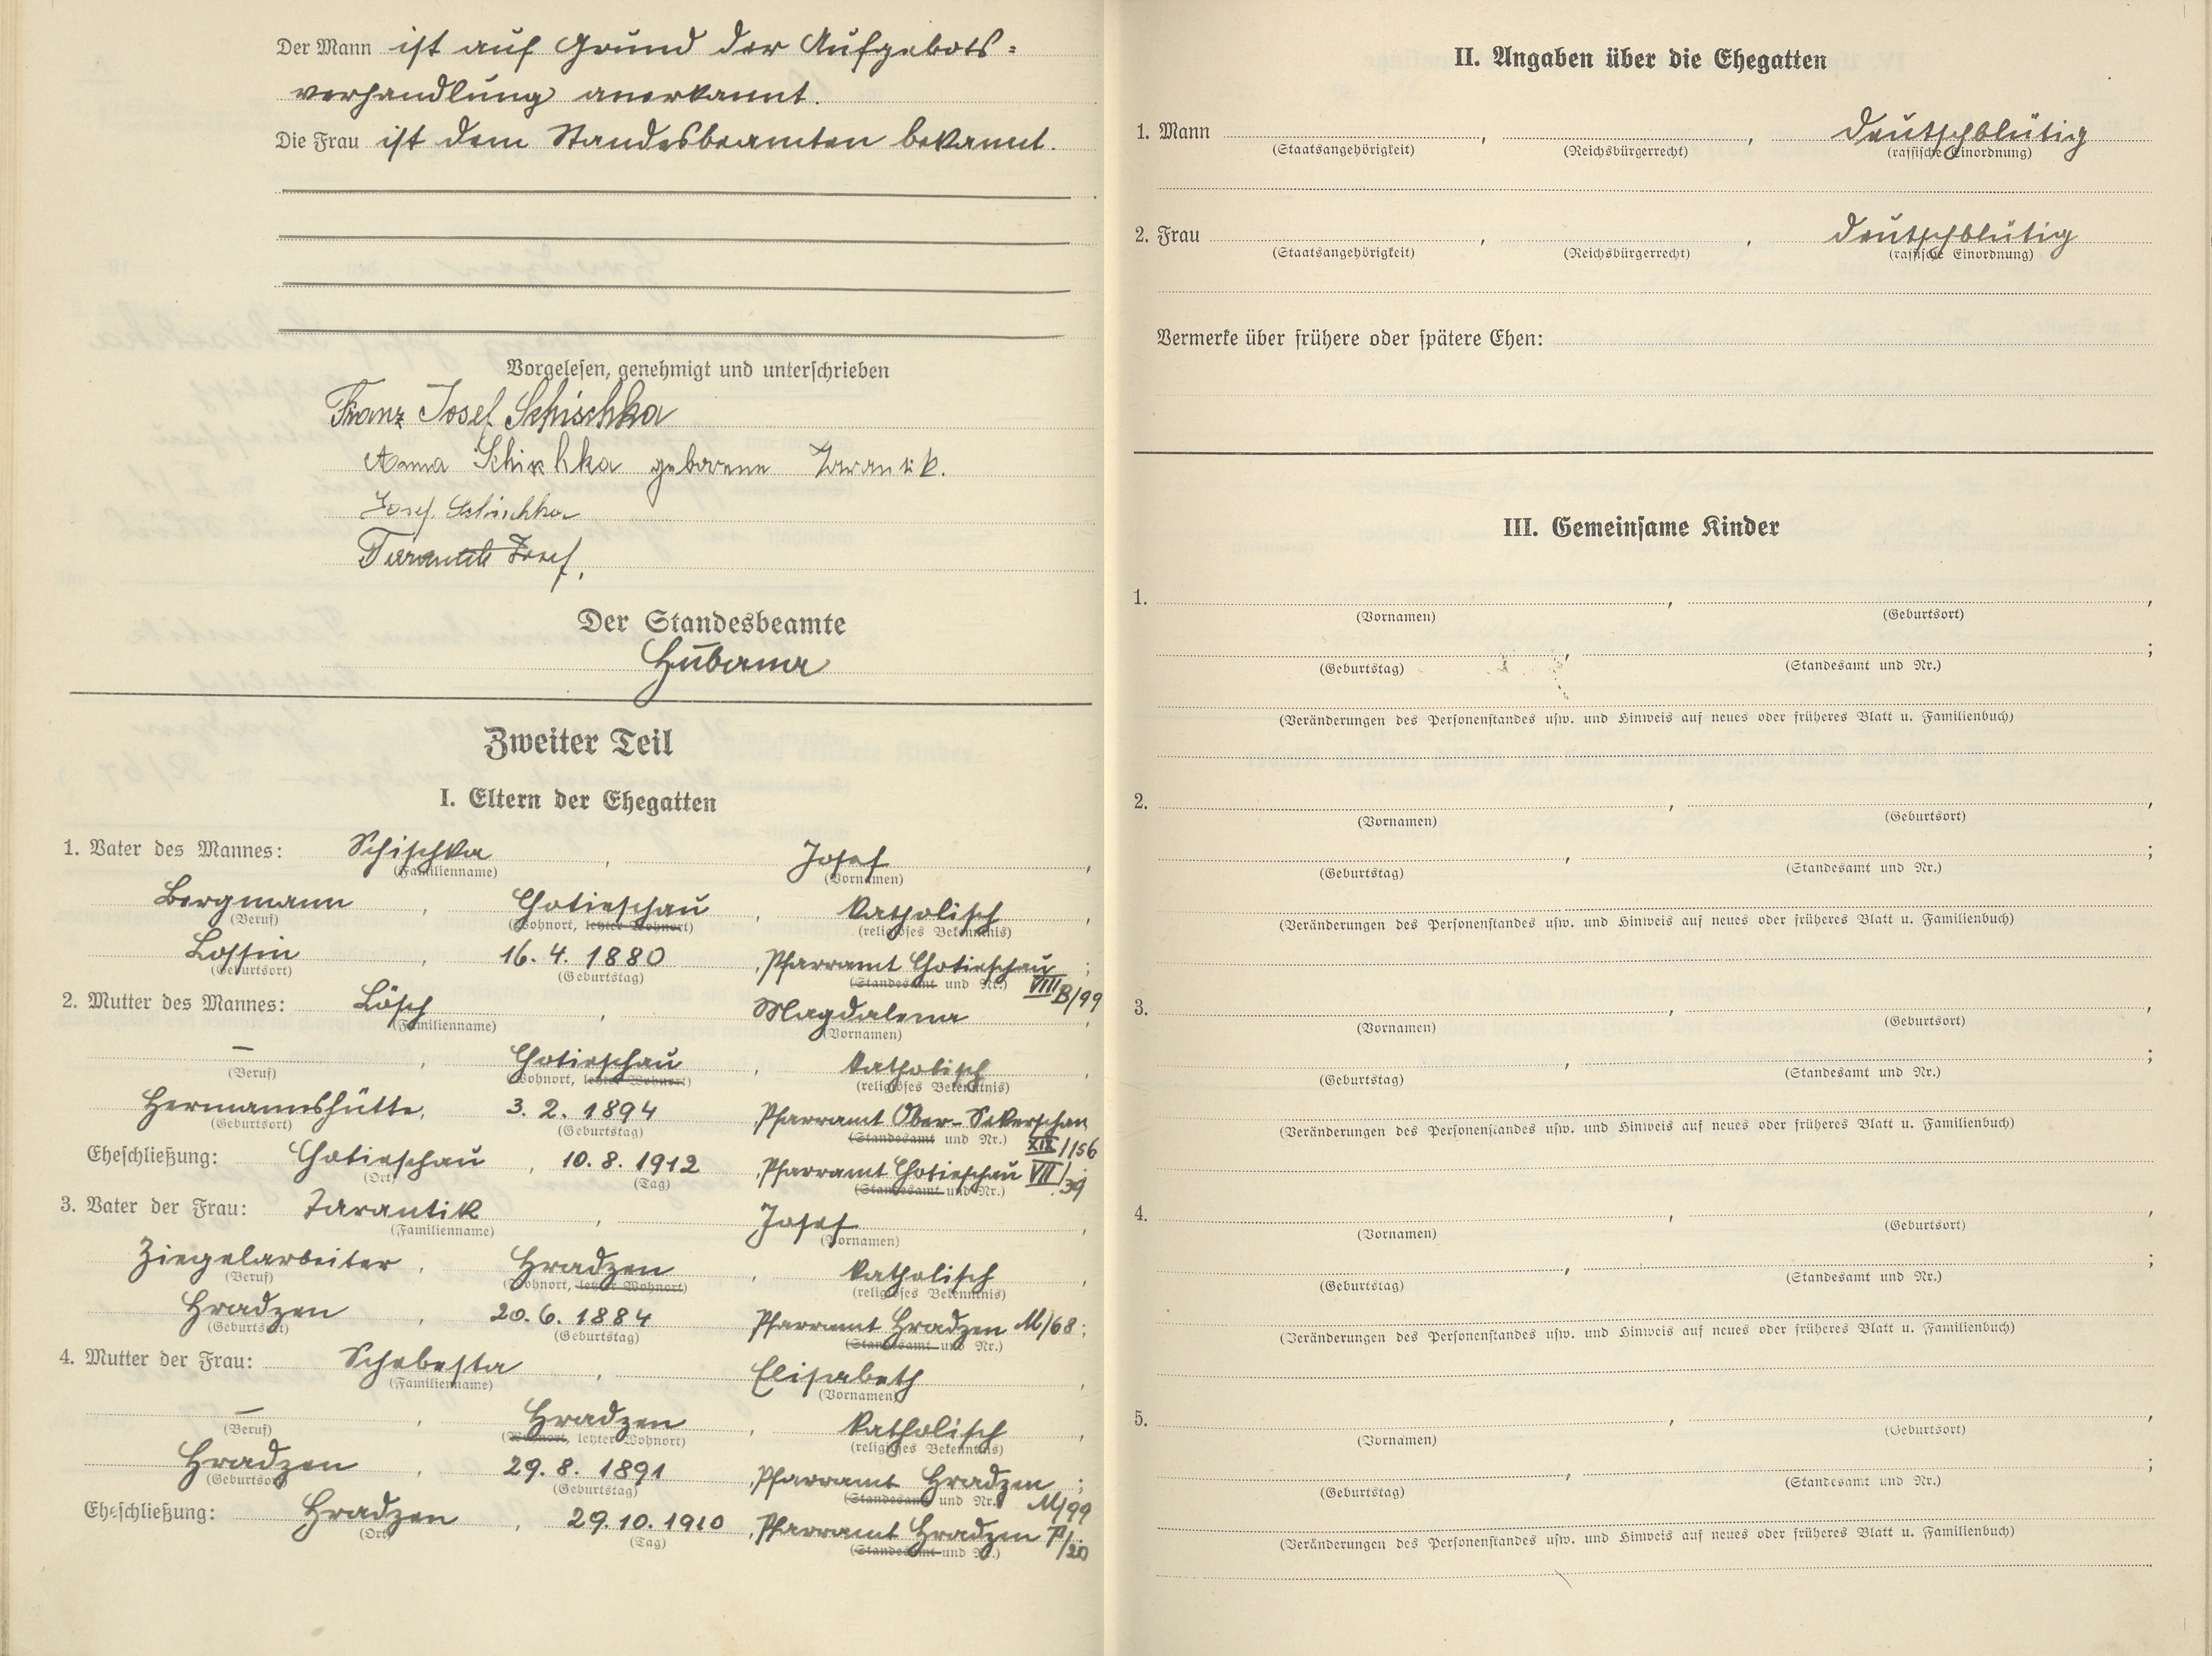 Der Mann ist auf Grund der Aufgebots-
verhandlung anerkannt.
Die Frau ist dem Standesbeamten bekannt.
Vorgelesen, genehmigt und unterschrieben
Franz Josef Schischka
Anna Schischka geborene Tarantik.
Josef Schischka
Tarantik Josef.
Der Standesbeamte
Hubama
Zweiter Teil
I. Eltern der Ehegatten
1. Vater des Mannes: Schischka, Josef,
(Familienname) (Vornamen)
Bergmann, Chotieschau, katholisch,
(Beruf) (Wohnort, letzter Wohnort) (religiöses Bekenntnis)
Lossin, 16. 4. 1880, Pfarramt Chotieschau;
(Geburtsort) (Geburtstag) (Standesamt und Nr.) VIII B/99
2. Mutter des Mannes: Lösch, Magdalena,
(Familienname) (Vornamen)
–, Chotieschau, katholisch,
(Beruf) (Wohnort, letzter Wohnort) (religiöses Bekenntnis)
Hermannshütte, 3. 2. 1894, Pfarramt Ober-Sekerschan
(Geburtsort) (Geburtstag) (Standesamt und Nr.) XIX/156
Eheschließung: Chotieschau, 10. 8. 1912, Pfarramt Chotieschau VII/39
(Ort) (Tag) (Standesamt und Nr.)
3. Vater der Frau: Tarantik, Josef,
(Familienname) (Vornamen)
Ziegelarbeiter, Hradzen, katholisch,
(Beruf) (Wohnort, letzter Wohnort) (religiöses Bekenntnis)
Hradzen, 20. 6. 1884, Pfarramt Hradzen M/68;
(Geburtsort) (Geburtstag) (Standesamt und Nr.)
4. Mutter der Frau: Schebesta, Elisabeth,
(Familienname) (Vornamen)
–, Hradzen, katholisch,
(Beruf) (Wohnort, letzter Wohnort) (religiöses Bekenntnis)
Hradzen, 29. 8. 1891, Pfarramt Hradzen;
(Geburtsort) (Geburtstag) (Standesamt und Nr.) M/99
Eheschließung: Hradzen, 29. 10. 1910, Pfarramt Hradzen P/20
(Ort) (Tag) (Standesamt und Nr.)
II. Angaben über die Ehegatten
1. Mann , , deutschblütig
(Staatsangehörigkeit) (Reichsbürgerrecht) (rassische Einordnung)
2. Frau , , deutschblütig
(Staatsangehörigkeit) (Reichsbürgerrecht) (rassische Einordnung)
Vermerke über frühere oder spätere Ehen:
III. Gemeinsame Kinder
1. , ,
(Vornamen) (Geburtsort)
, ;
(Geburtstag) (Standesamt und Nr.)
(Veränderungen des Personenstandes usw. und Hinweis auf neues oder früheres Blatt u. Familienbuch)
2. , ,
(Vornamen) (Geburtsort)
, ;
(Geburtstag) (Standesamt und Nr.)
(Veränderungen des Personenstandes usw. und Hinweis auf neues oder früheres Blatt u. Familienbuch)
3. , ,
(Vornamen) (Geburtsort)
, ;
(Geburtstag) (Standesamt und Nr.)
(Veränderungen des Personenstandes usw. und Hinweis auf neues oder früheres Blatt u. Familienbuch)
4. , ,
(Vornamen) (Geburtsort)
, ;
(Geburtstag) (Standesamt und Nr.)
(Veränderungen des Personenstandes usw. und Hinweis auf neues oder früheres Blatt u. Familienbuch)
5. , ,
(Vornamen) (Geburtsort)
, ;
(Geburtstag) (Standesamt und Nr.)
(Veränderungen des Personenstandes usw. und Hinweis auf neues oder früheres Blatt u. Familienbuch)